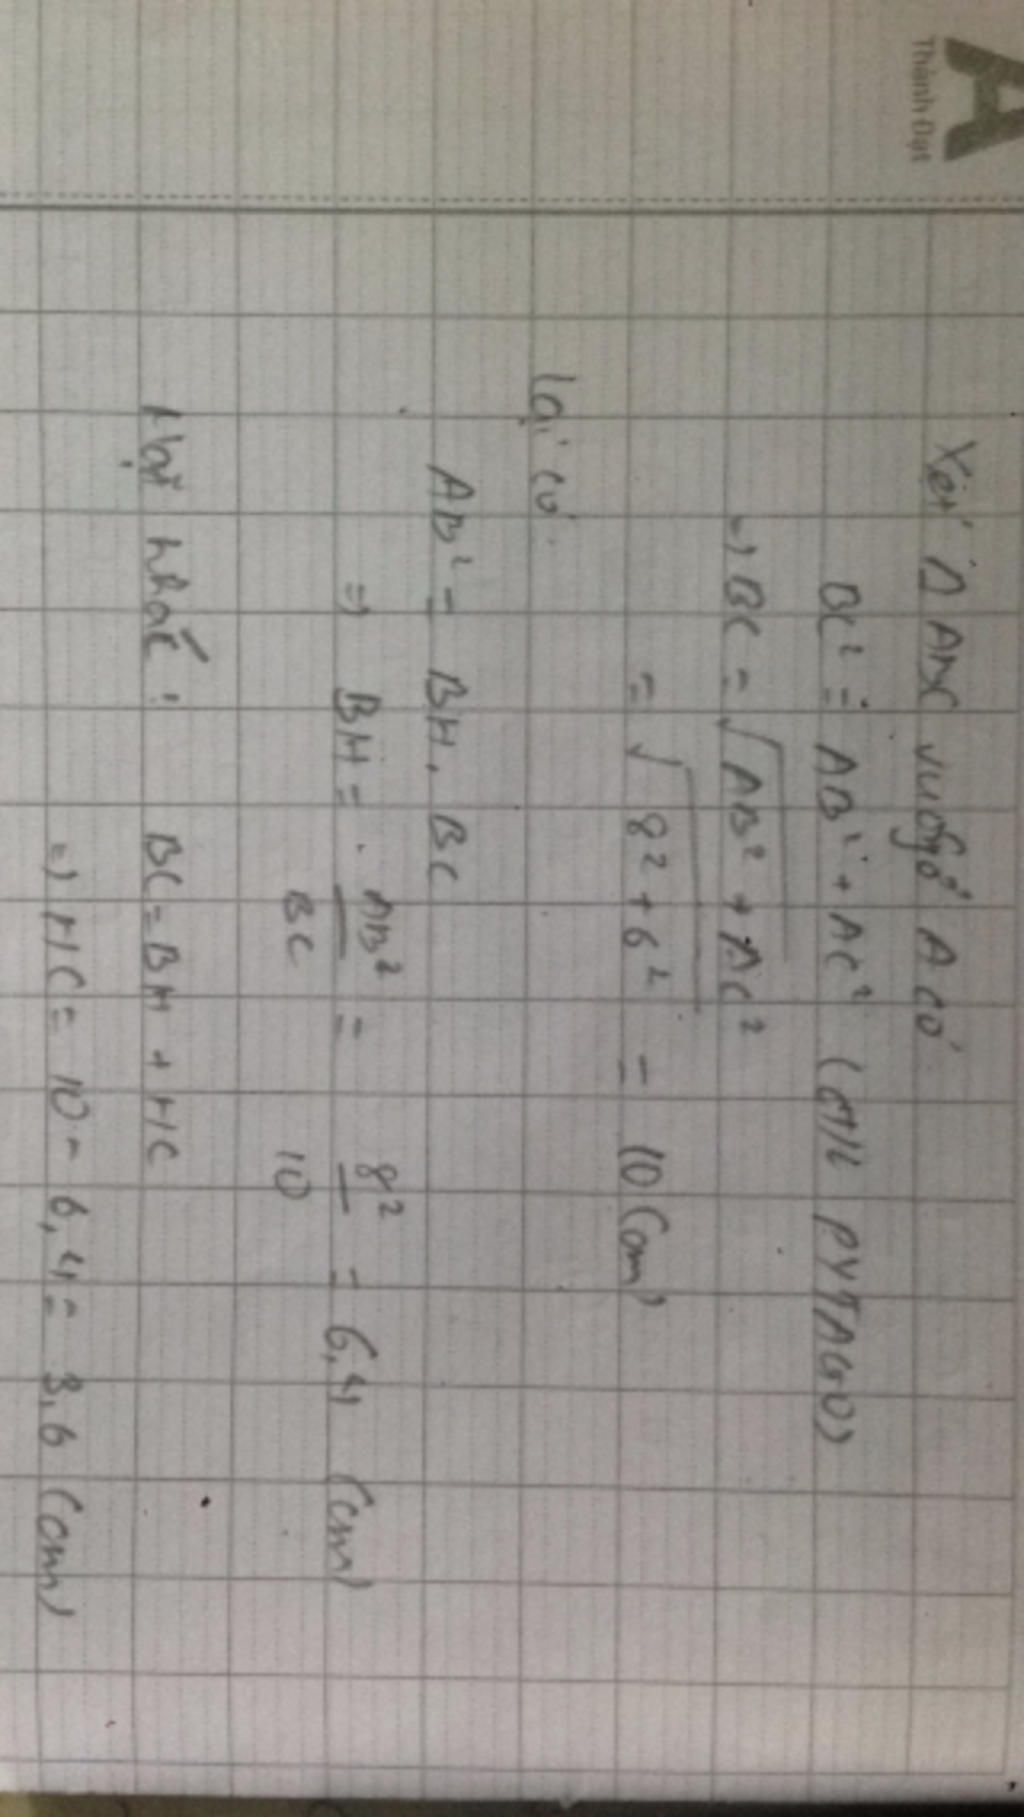 A
Thành Đạt
Xét Δ ABC vuông ở A có
BC² = AB² + AC² (ĐTH PYTAGO)
=> BC = √AB² + AC²
= √8² + 6² = 10 (cm)
Lại có
AB² = BH. BC
=> BH = AB²/BC = 8²/10 = 6,4 (cm)
Mặt khác: BC = BH + HC
=> HC = 10 - 6,4 = 3,6 (cm)